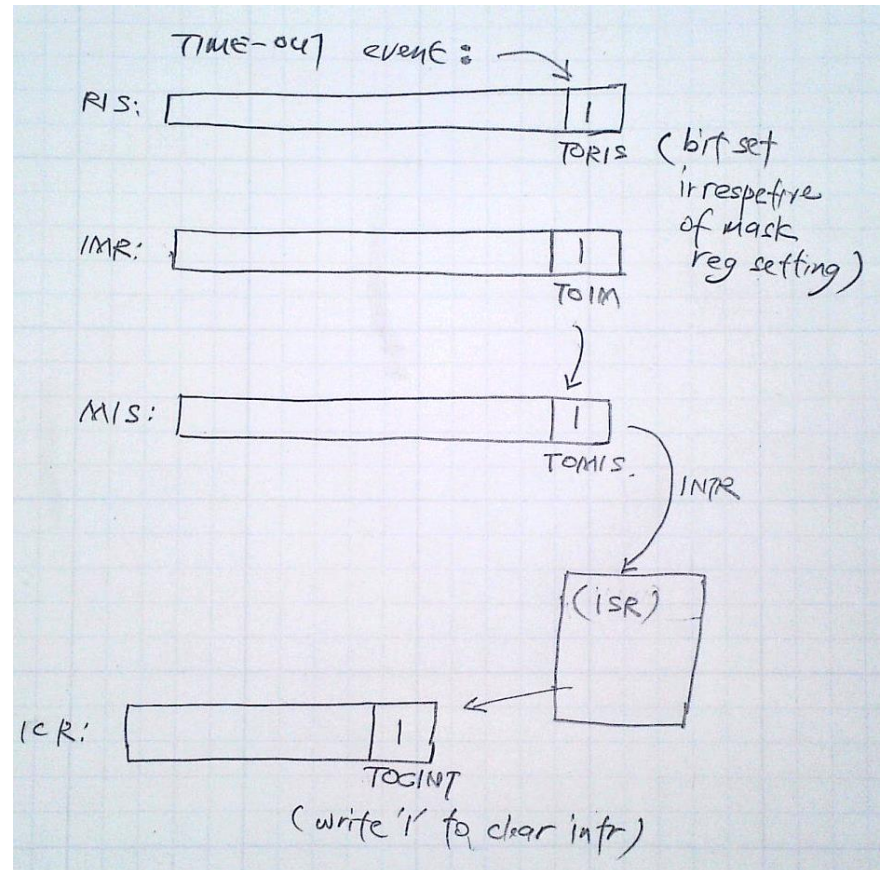 TIME-OUT event:
RIS: 1
TORIS
(bit set
irrespetive
of mask
reg setting)
IMR: 1
TOIM
MIS: 1
TOMIS.
INTR
(ISR)
ICR: 1
TOCINT
(write '1' to clear intr)